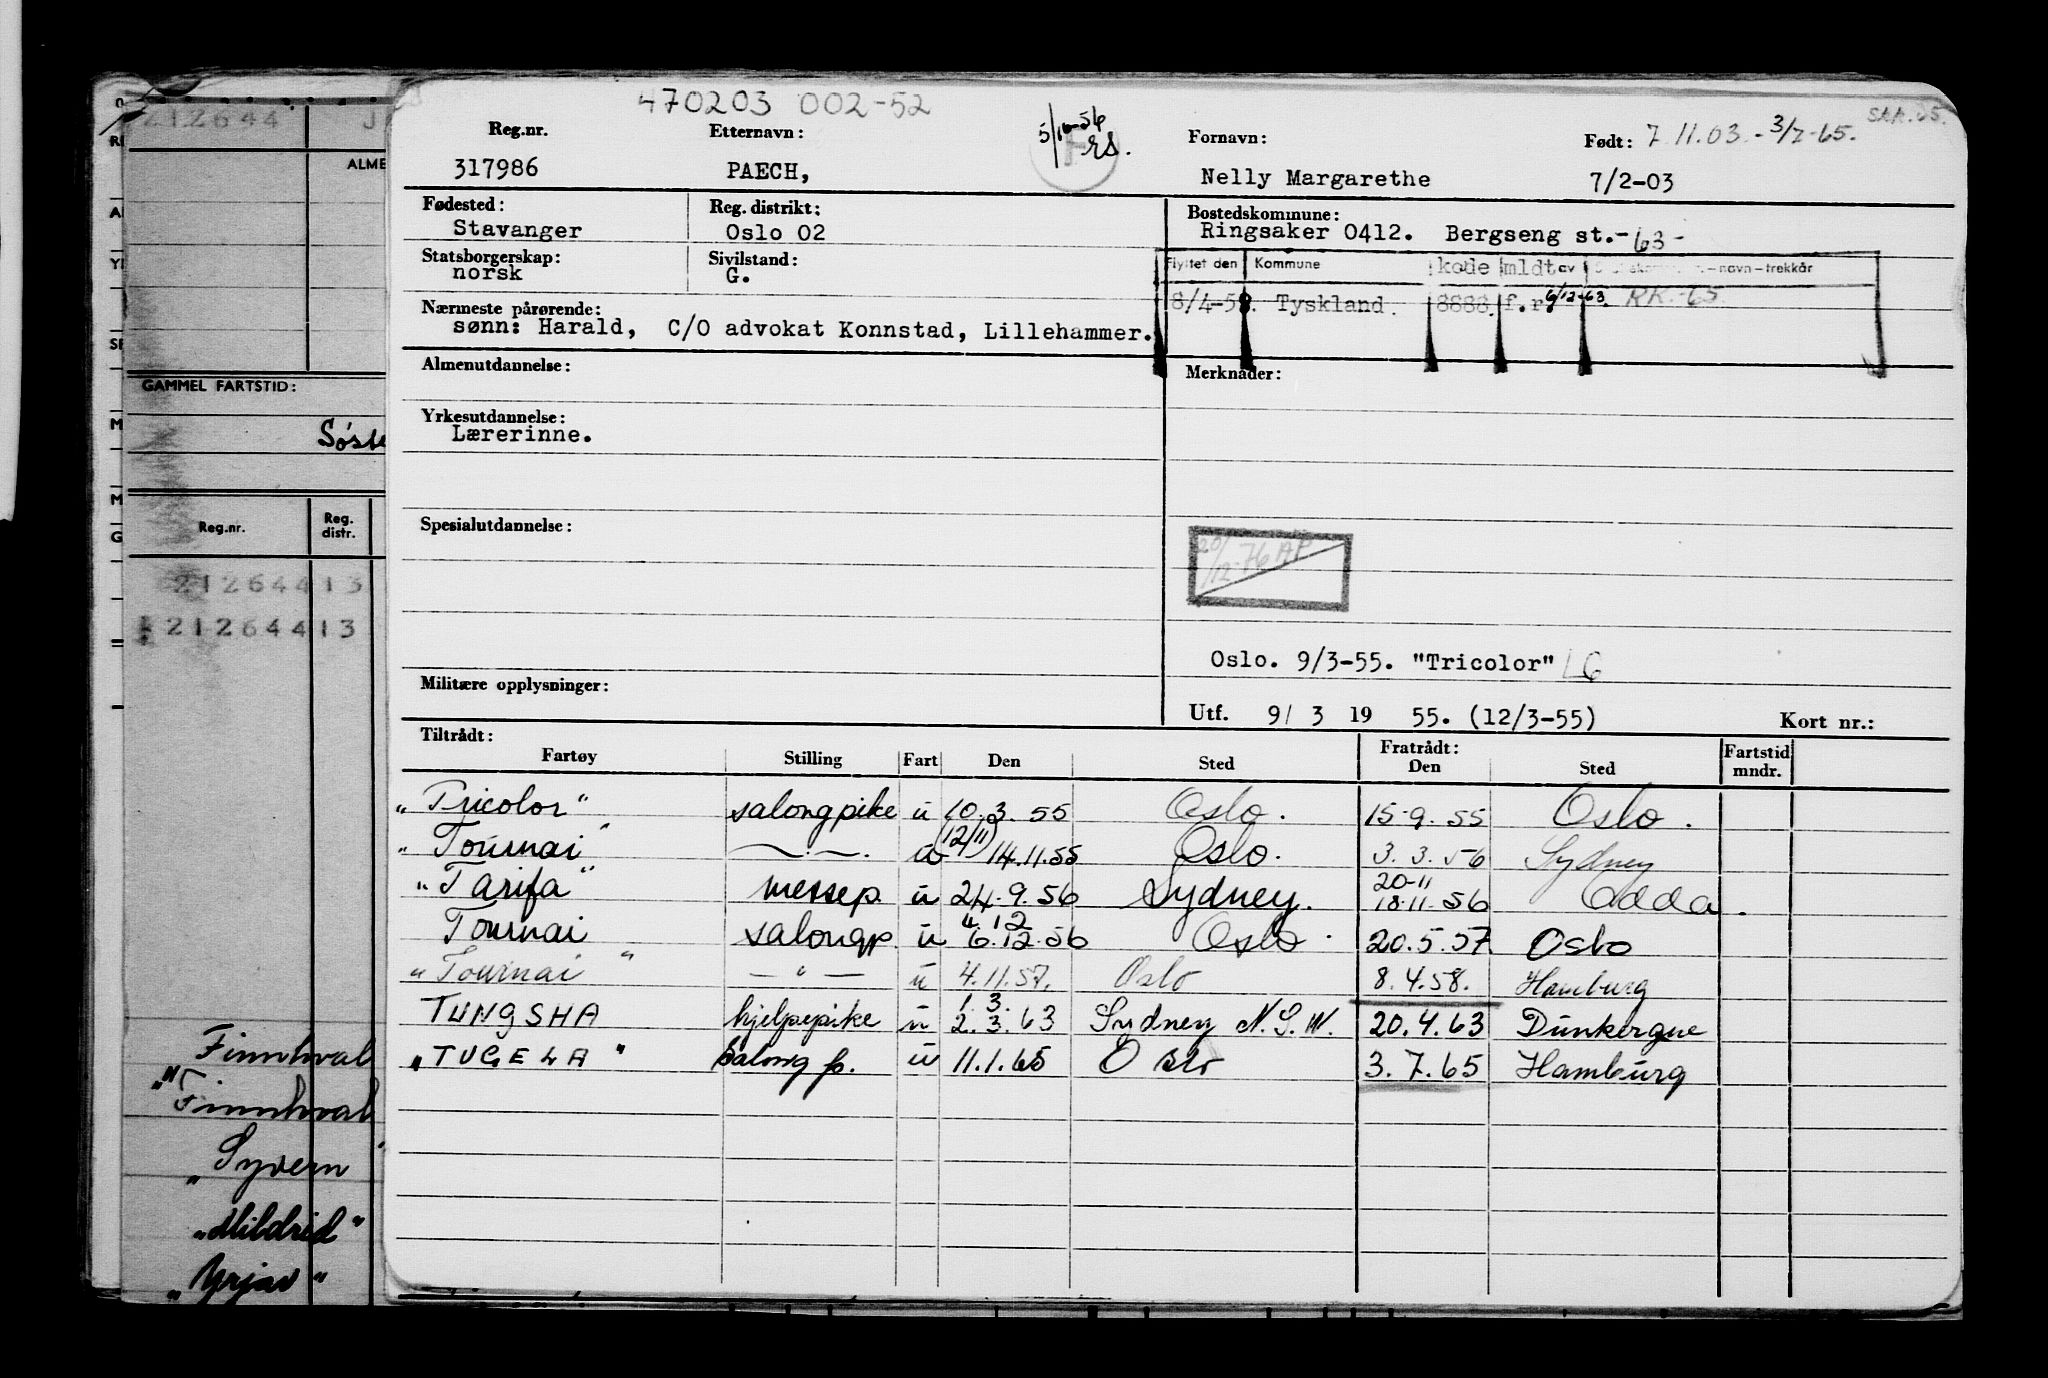 470203 002-52
Reg.nr. Etternavn: 5/10-56 rs. Fornavn: Født: 7.11.03.-3/7-65.
317986 PAECH, Nelly Margarethe 7/2-03
Fødested: Reg. distrikt: Bostedskommune:
Stavanger Oslo 02 Ringsaker 0412. Bergseng st.-63-
Statsborgerskap: Sivilstand: Flyttet den Kommune kode mldt av -navn-trekkår
norsk G.
Nærmeste pårørende: 8/4-58. Tyskland. 8888. f.r. 6/12-63. RK.-65
sønn: Harald, C/O advokat Konnstad, Lillehammer.
Almenutdannelse: Merknader:
Yrkesutdannelse:
Lærerinne.
Spesialutdannelse:
20/12-76 AP
Oslo. 9/3-55. "Tricolor" LG
Militære opplysninger:
Utf. 9/ 3 19 55. (12/3-55) Kort nr.:
Tiltrådt: Fratrådt:
Fartøy Stilling Fart Den Sted Den Sted Fartstid mndr.
"Tricolor" salongpike u 10.3.55 Oslo. 15-9.55 Oslo.
"Tournai" —.—. u (12/11) 14.11.55 Oslo. 3.3.56 Sydney
"Tarifa" messep. u 24.9.56 Sydney. 20-11 18.11.56 Odda.
Tournai" salongp. u 4.12 6.12.56 Oslo. 20.5.57 Oslo
"Tournai — " — u 4.11.57. Oslo 8.4.58. Hamburg
TUNGSHA hjelpepike u 1.3. 2.3.63 Sydney N.S.W. 20.4.63 Dunkerque
"TUGELA" salong p. u 11.1.65 Oslo 3.7.65 Hamburg
212644 J
ALME
GAMMEL FARTSTID:
Søste
Reg.nr. Reg. distr.
212644 13
212644 13
Finnhval
"Finnhval
"Syvern"
"Mildrid"